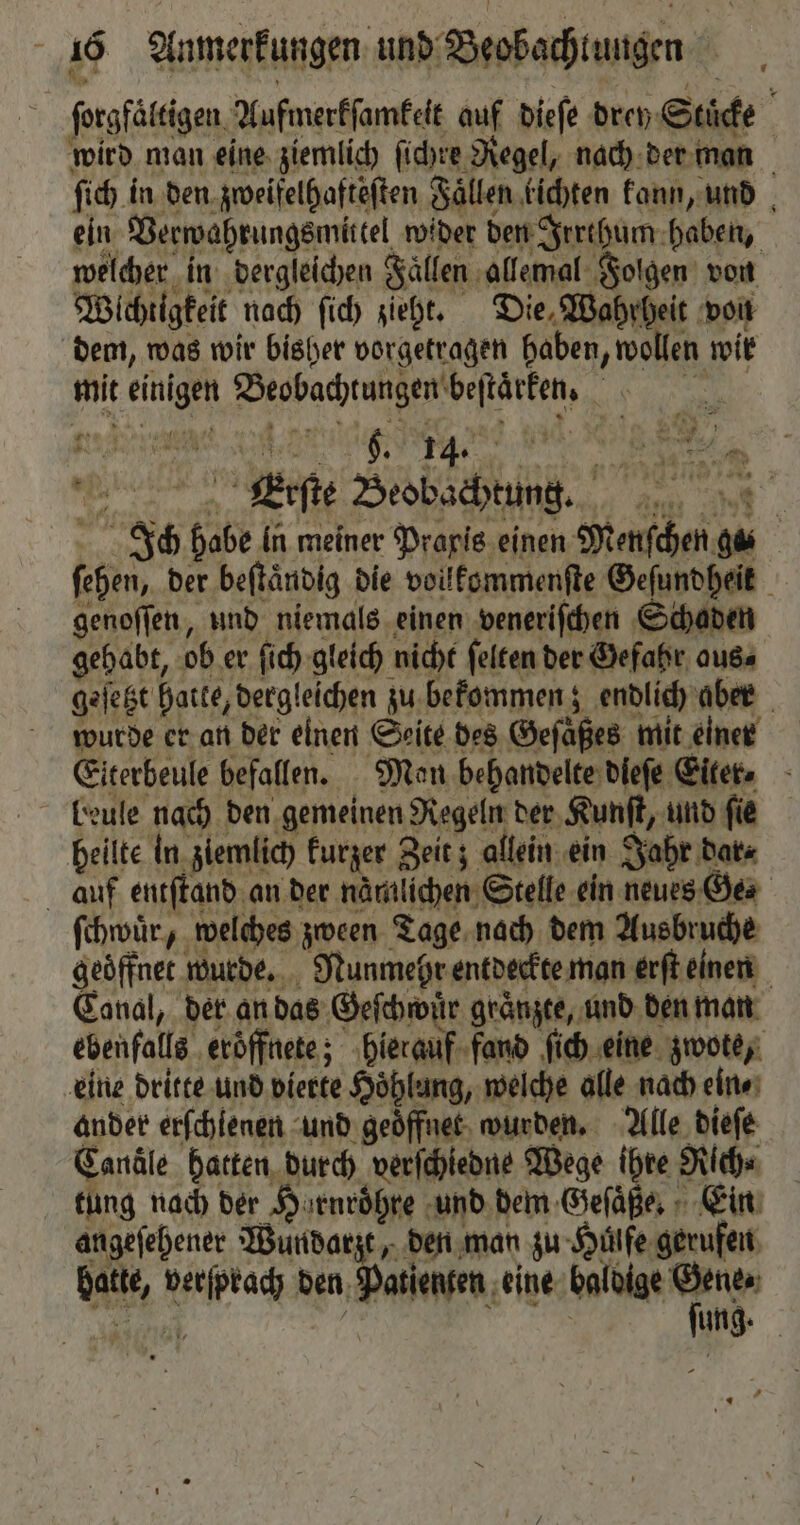 16 Anmerkungen und Beobachtungen
ſorgfaͤltigen Aufmerkſamkeit auf dieſe drey Stuͤcke
wird man eine ziemlich ſichre Regel, nach der man
ſich in den zweifelhafteſten Faͤllen richten kann, und
ein Verwahrungsmittel wider den Irrthum haben,
welcher in dergleichen Faͤllen allemal Folgen von
Wichtigkeit nach ſich zieht. Die Wahrheit von
dem, was wir bisher vorgetragen haben, wollen wir
mit einigen Beobachtungen beſtaͤrken.
§. 14.
Erſte Beobachtung.
Ich habe in meiner Praxis einen Menſchen ge⸗
ſehen, der beſtaͤndig die vollkommenſte Geſundheit
genoſſen, und niemals einen veneriſchen Schaden
gehabt, ob er ſich gleich nicht ſelten der Gefahr aus⸗
geſetzt hatte, dergleichen zu bekommen; endlich aber
wurde er an der einen Seite des Geſaͤßes mit einer
Eiterbeule befallen. Man behandelte dieſe Eiter⸗
beule nach den gemeinen Regeln der Kunſt, und ſie
heilte in ziemlich kurzer Zeit; allein ein Jahr dar⸗
auf entſtand an der naͤmlichen Stelle ein neues Ge⸗
ſchwuͤr, welches zween Tage nach dem Ausbruche
geoͤffnet wurde. Nunmehr entdeckte man erſt einen
Canal, der an das Geſchwuͤr graͤnzte, und den man
ebenfalls eroͤffnete; hierauf fand ſich eine zwote,
eine dritte und vierte Hoͤhlung, welche alle nach ein⸗
ander erſchienen und geoͤffnet wurden. Alle dieſe
Canaͤle hatten durch verſchiedne Wege ihre Rich⸗
tung nach der Harnroͤhre und dem Geſaͤße. Ein
angeſehener Wundarzt, den man zu Huͤlfe gerufen
hatte, verſprach den Patienten eine baldige Gene⸗
ſung.